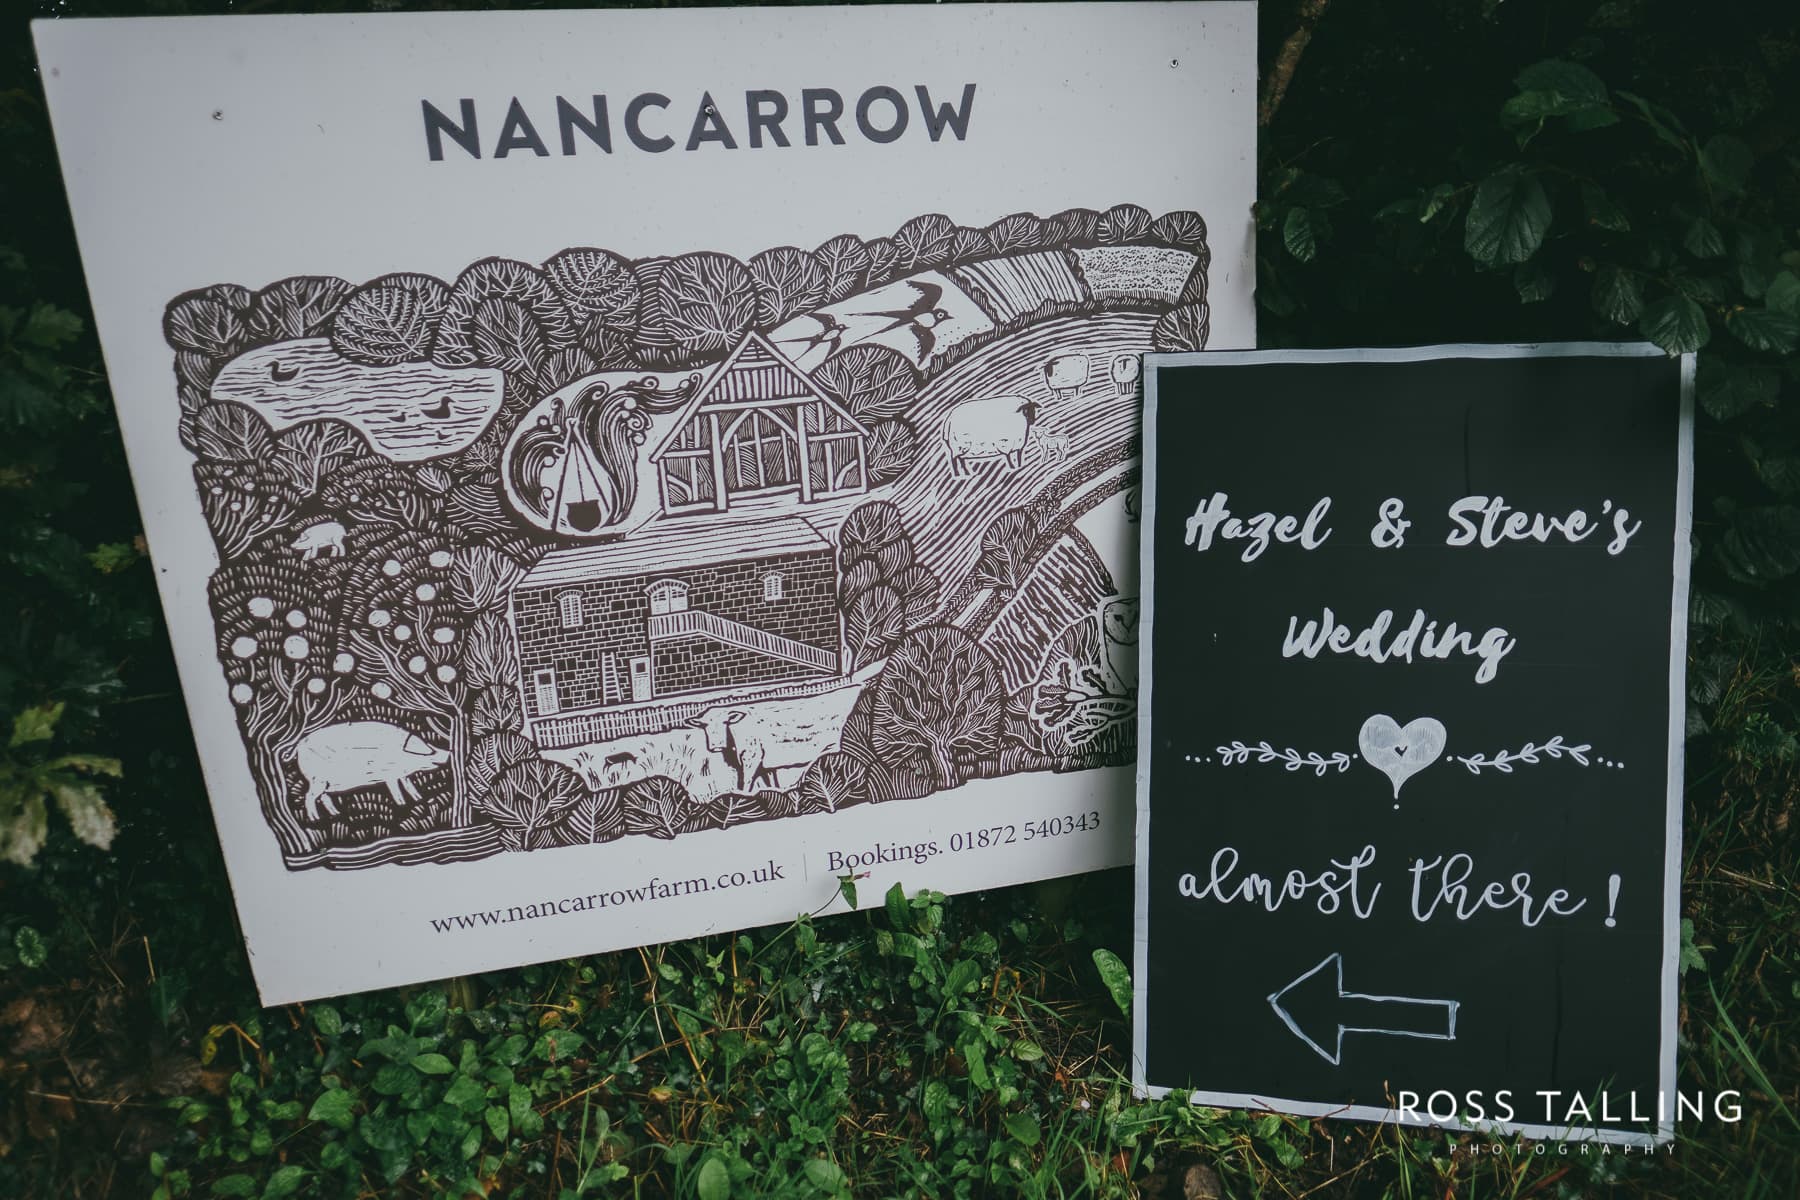 NANCARROW
www.nancarrowfarm.co.uk | Bookings. 01872 540343
Hazel & Steve's
Wedding
almost there!
ROSS TALLING
PHOTOGRAPHY